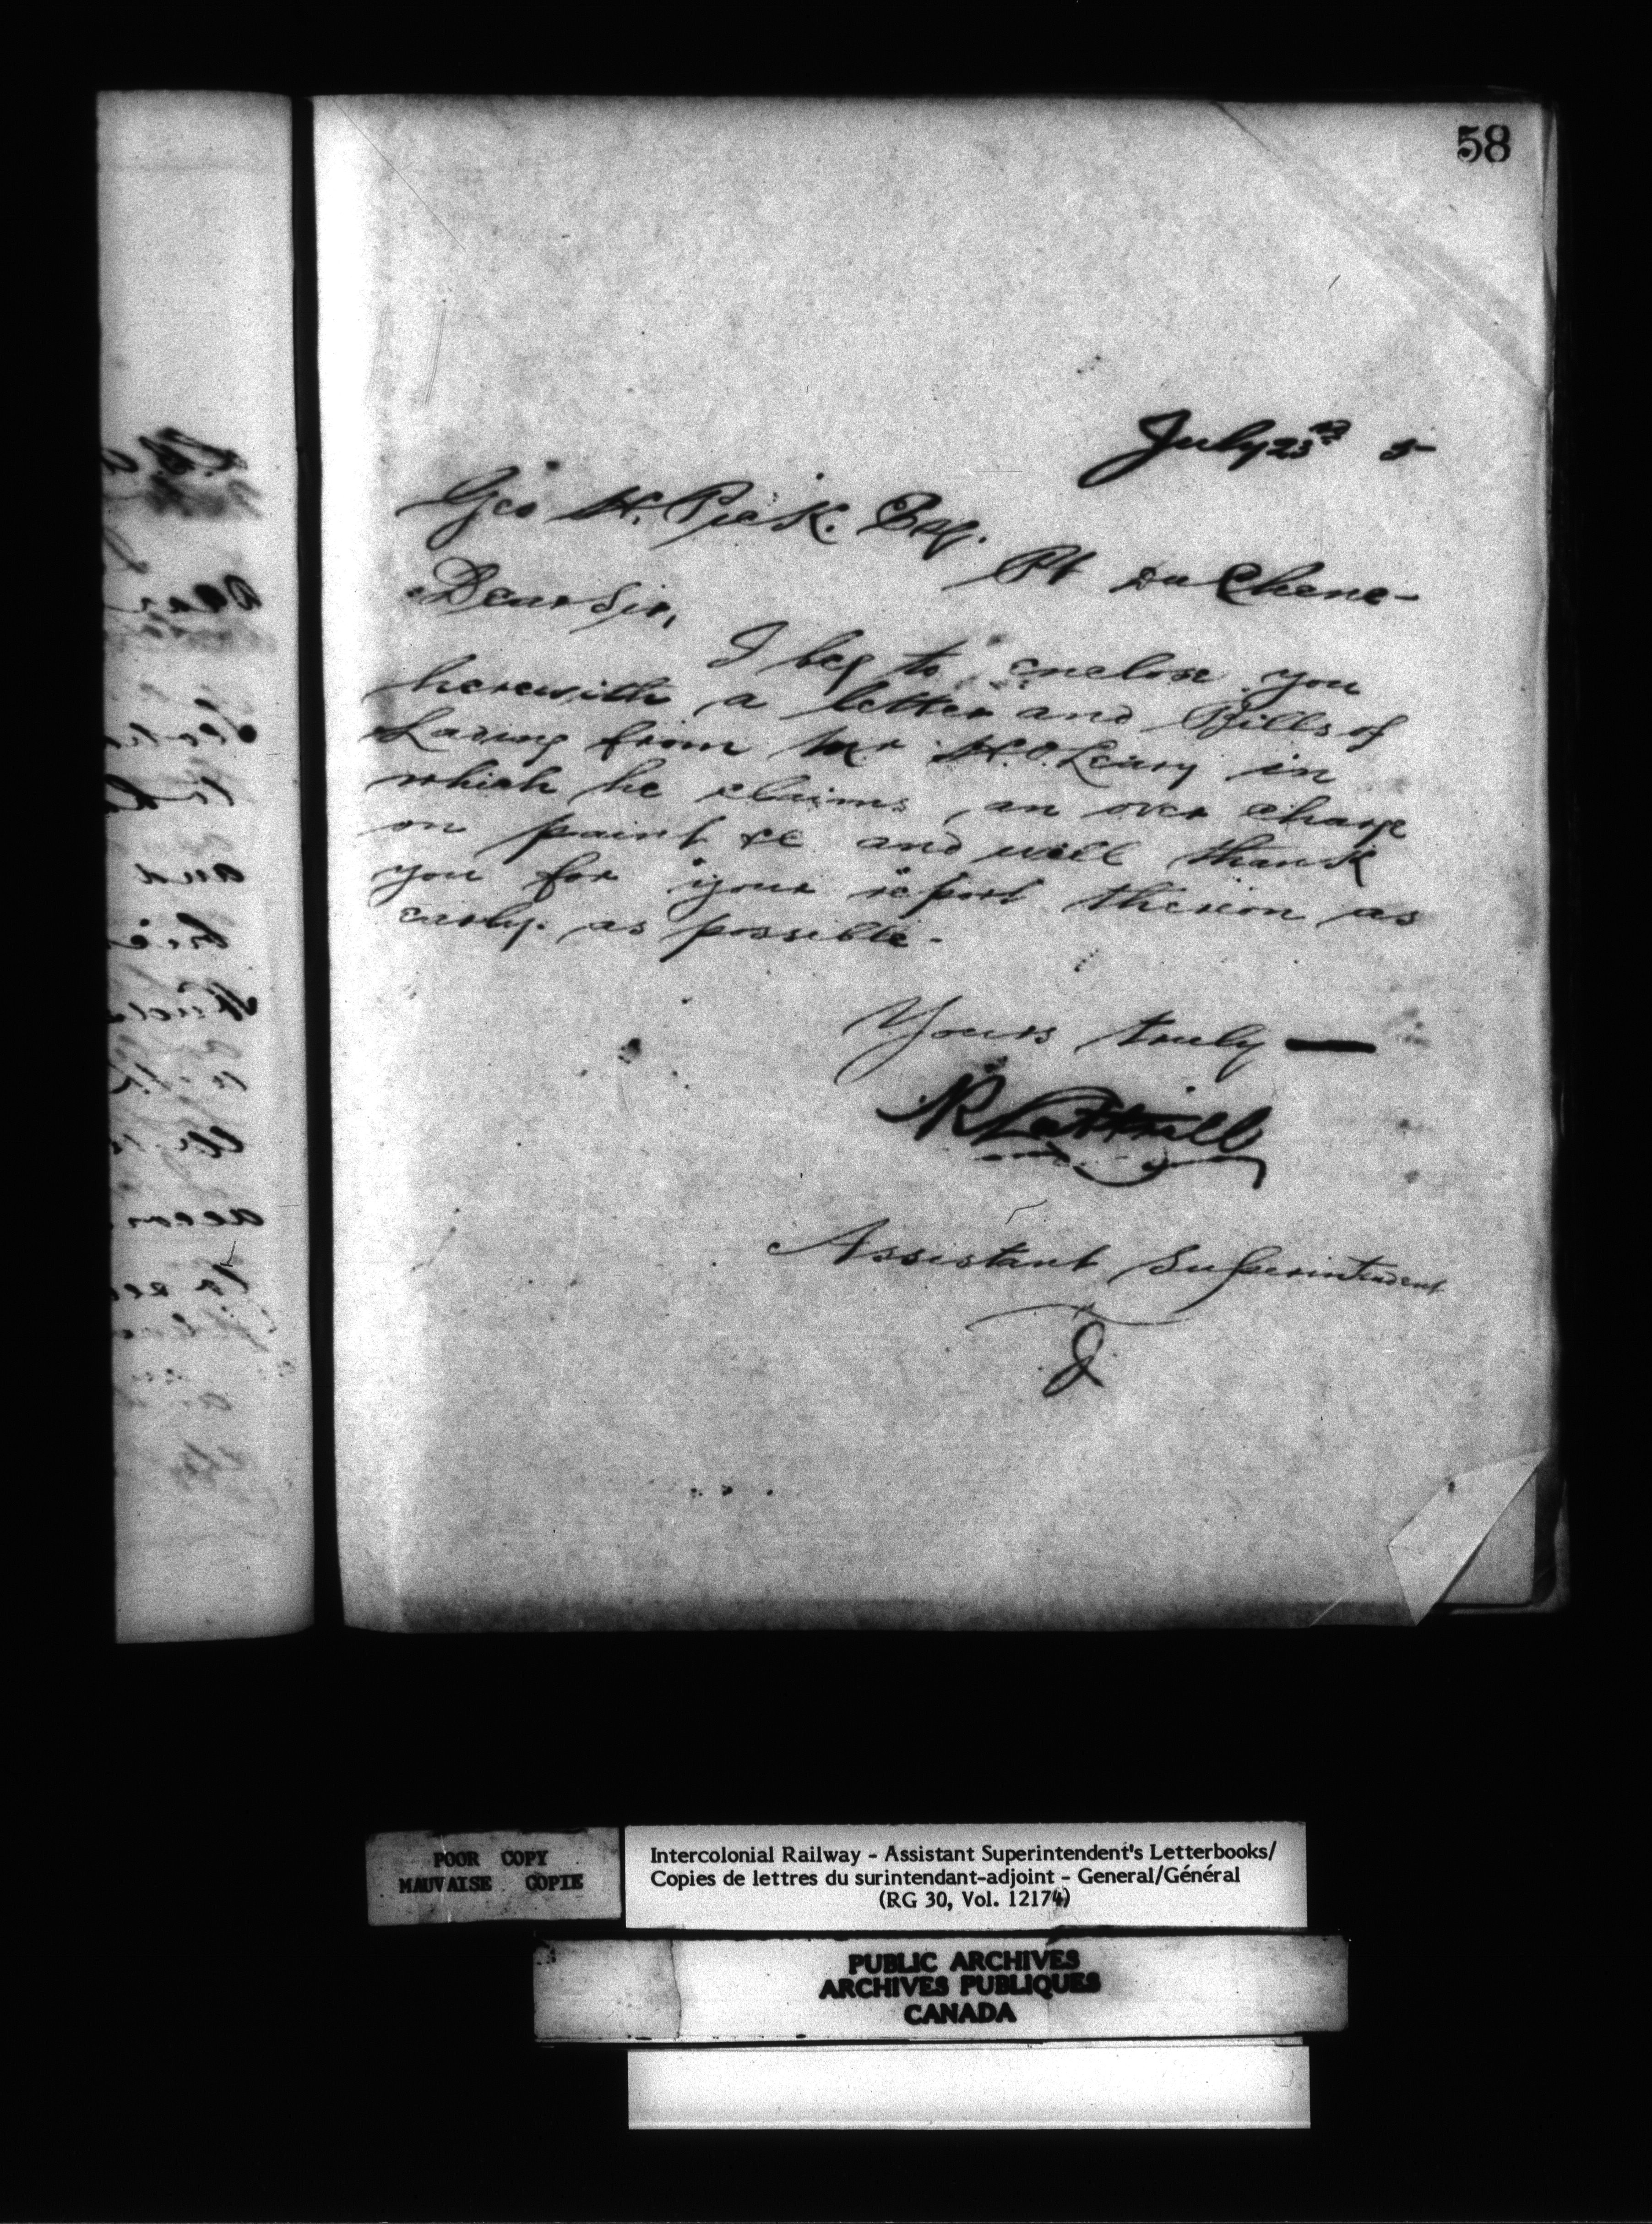 58
July 23rd 5
Geo H. Pick. Esq.
Pt du Chene-
Dear Sir,
I beg to enclose you
herewith a letter and Bills of
Lading from Mr H. O. Leary in
which he claims an over charge
on paint &c and will thank
you for your report thereon as
early as possible-
Yours truly —
Assistant Superintendent
J
POOR COPY
MAUVAISE COPIE
Intercolonial Railway - Assistant Superintendent's Letterbooks/
Copies de lettres du surintendant-adjoint - General/Général
(RG 30, Vol. 12174)
PUBLIC ARCHIVES
ARCHIVES PUBLIQUES
CANADA